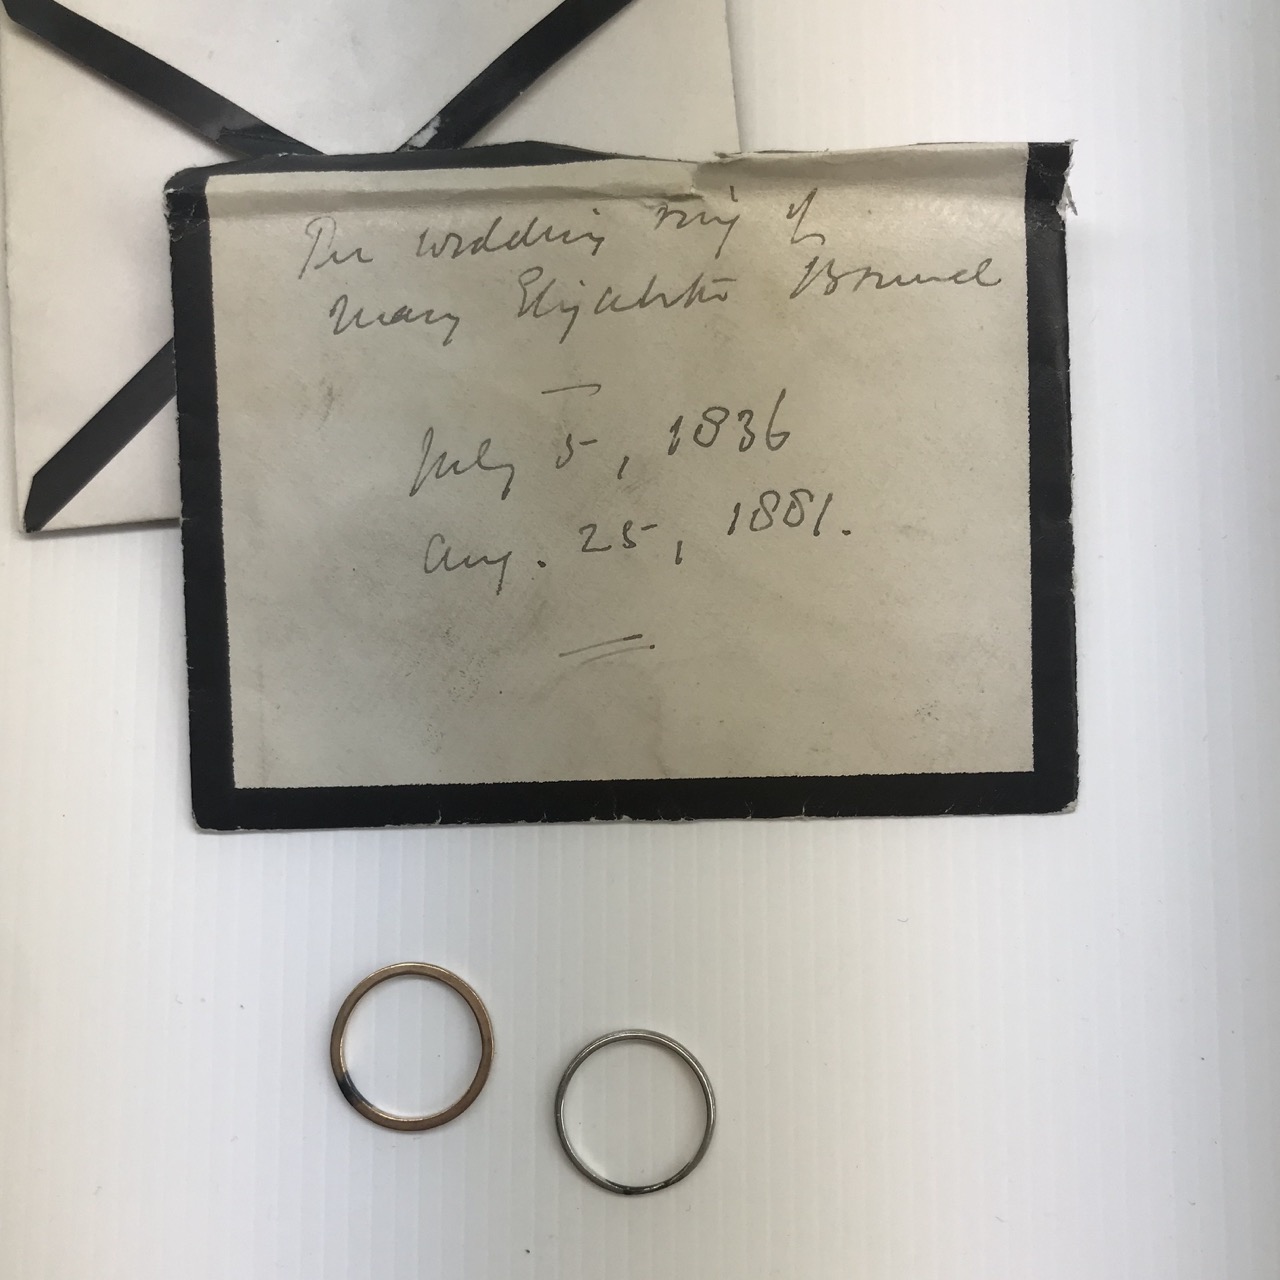 The wedding ring of
Mary Elizabeth Brunel
July 5, 1836
Aug. 25, 1881.